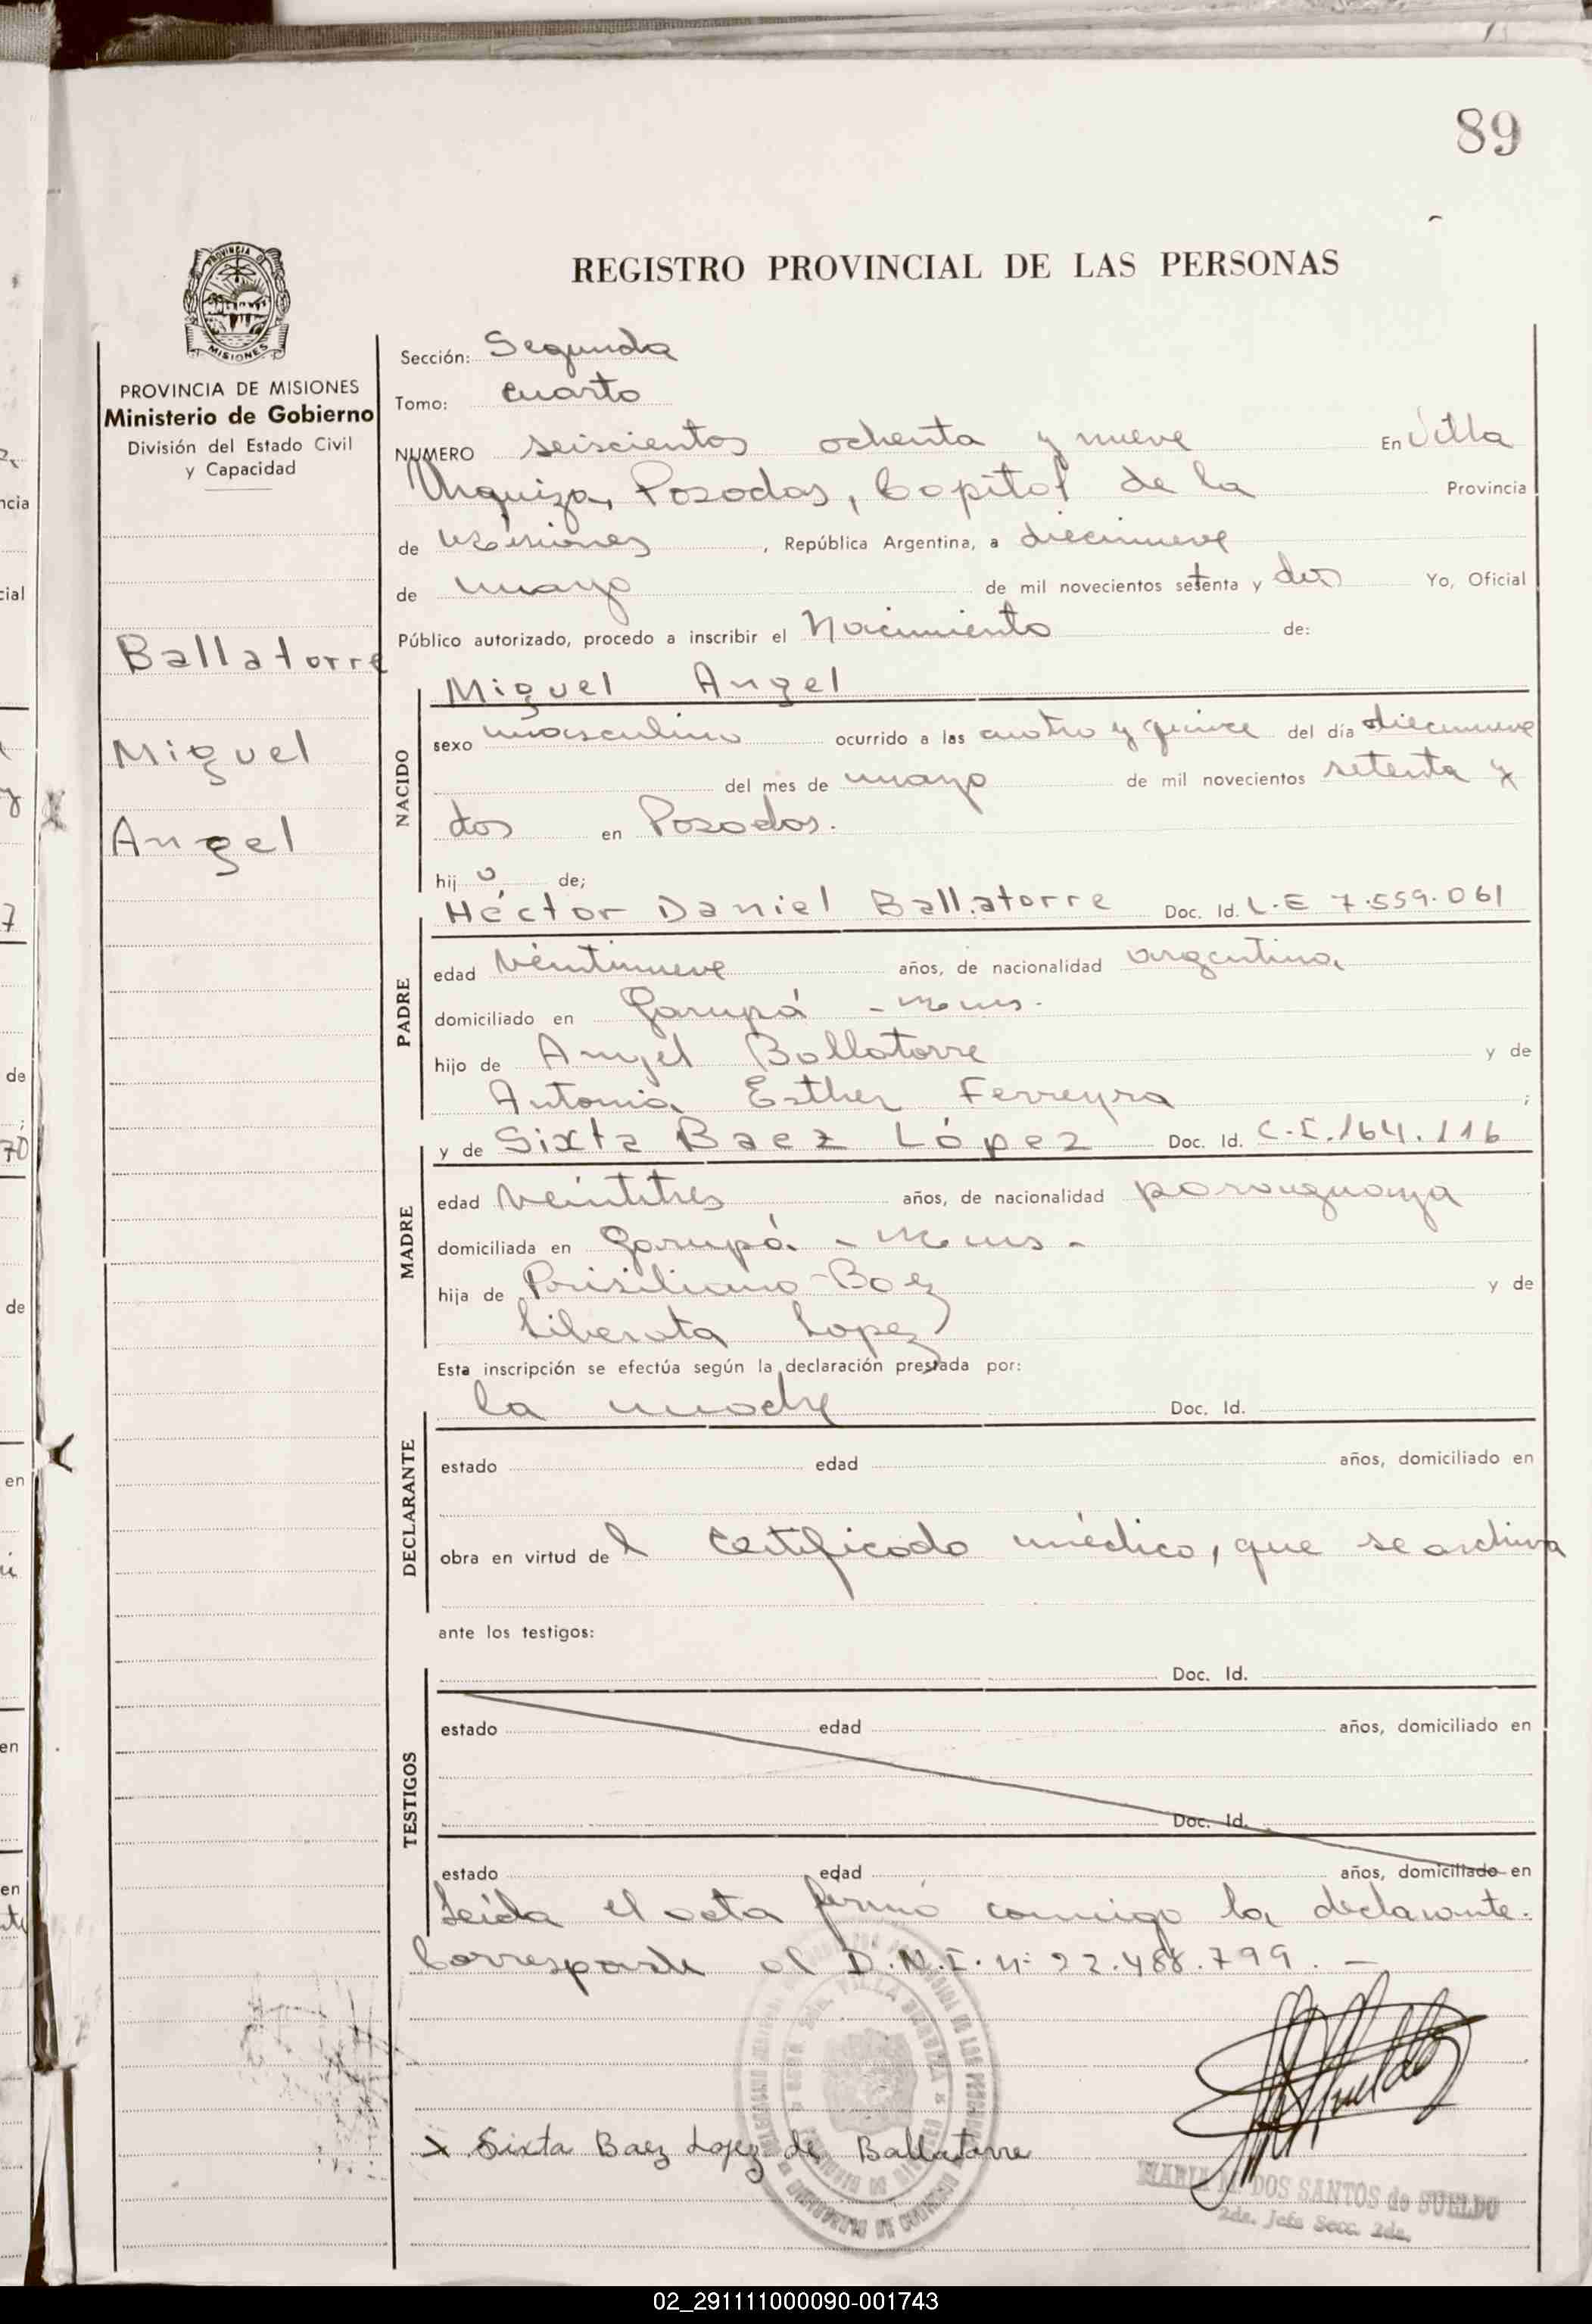 89
REGISTRO PROVINCIAL DE LAS PERSONAS
PROVINCIA DE MISIONES
Ministerio de Gobierno
División del Estado Civil
y Capacidad
Ballatorre
Miguel
Angel
Sección: Segunda
Tomo: cuarto
NUMERO seiscientos ochenta y nueve En Villa
Urquiza, Posadas, Capital de la Provincia
de Misiones, República Argentina, a diecinueve
de mayo de mil novecientos setenta y dos Yo, Oficial
Público autorizado, procedo a inscribir el Nacimiento de:
NACIDO
Miguel Angel
sexo masculino ocurrido a las cuatro y quince del día diecinueve
del mes de mayo de mil novecientos setenta y
dos en Posadas.
hijo de;
PADRE
Héctor Daniel Ballatorre Doc. Id. L.E 7.559.061
edad veintinueve años, de nacionalidad argentina
domiciliado en Garupá - Mnes.
hijo de Angel Ballatorre y de
Antonia Esther Ferreyra ;
MADRE
y de Sixta Baez López Doc. Id. C.I.164.116
edad veintitres años, de nacionalidad paraguaya
domiciliada en Garupá - Mnes -
hija de Prisiliano Baez y de
Liberata Lopez)
Esta inscripción se efectúa según la declaración prestada por:
DECLARANTE
la madre Doc. Id.
estado edad años, domiciliado en
obra en virtud del certificado médico, que se archiva
ante los testigos:
TESTIGOS
Doc. Id.
estado edad años, domiciliado en
Doc. Id.
estado edad años, domiciliado en
Leída el acta firmó conmigo la declarante.
Corresponde al D.N.I. nº 22.488.799. —
x Sixta Baez Lopez de Ballatorre
MARIA M. DOS SANTOS de SUELDO
2da. Jefa Secc. 2da.
02_291111000090-001743